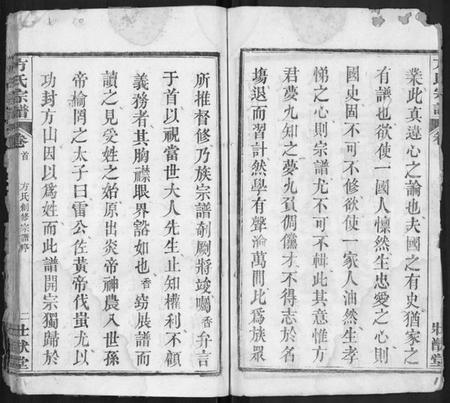 業此真遠心之論也夫國之有史猶家之
有譜也欲使一國人懍然生忠愛之心則
國史固不可不修欲使一家人油然生孝
悌之心則宗譜尤不可不輯此其意惟方
君夢九知之夢九負倜儻才不得志於名
塲退而習計然學有聲滄萬間比為族眾
方氏宗譜
卷首
方氏創修宗譜序
二
壯猷堂
所推督修乃族宗譜剞劂將竣囑香弁言
于首以視當世大人先生止知權利不顧
義務者其胸襟眼界豁如也香窃展譜而
讀之見受姓之始原出炎帝神農八世孫
帝綸罔之太子曰雷公佐黃帝伐蚩尤以
功封方山因以爲姓而此譜開宗獨歸於